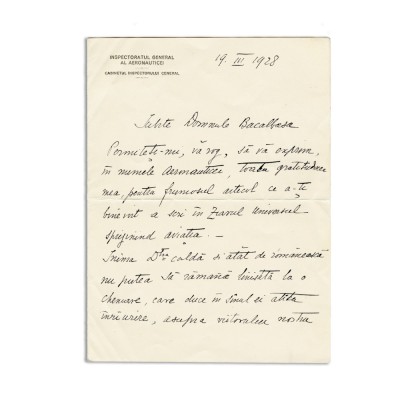 INSPECTORATUL GENERAL
AL AERONAUTICEI
CABINETUL INSPECTORULUI GENERAL
19. III 1928
Iubite Domnule Bacalbașa
Permiteți-mi, vă rog, să vă exprim,
în numele Aeronauticei, toată gratitudinea
mea, pentru frumosul articol ce a-ți
binevoit a scri în Ziarul Universul
sprijinind aviația. —
Inima Dtră caldă și atât de românească
nu putea să rămână liniștită la o
chemare, care duce în sinul ei atâta
înrâurire, asupra viitorului nostru